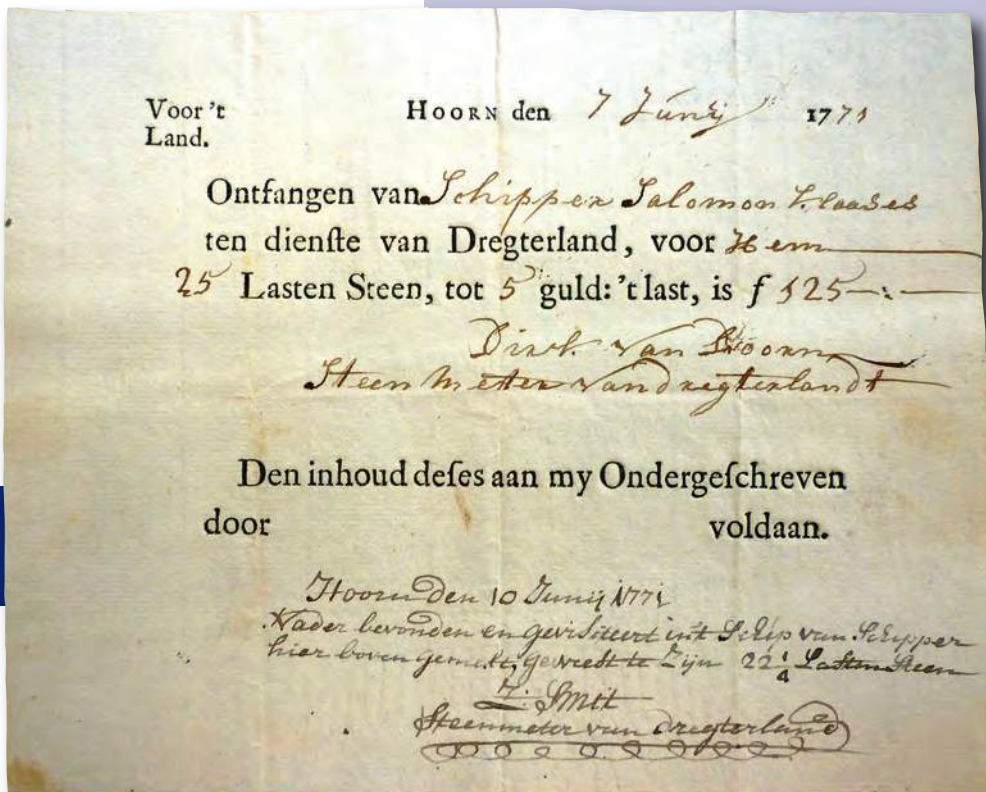 Voor 't HOORN den 7 Junij 1771
Land.
Ontfangen van Schipper Salomon Klaases
ten dienſte van Dregterland, voor Hem
25 Lasten Steen, tot 5 guld: 't last, is f 125-:-
Dirk van Hoorn
Steen Metter van dregterlandt
Den inhoud deſes aan my Ondergeſchreven
door voldaan.
Hoorn Den 10 Junij 1771
Nader bevonden en gevisiteert int Schip van Schipper
hier boven gemelt, geweest te Zijn 22 1/4 Lasten Steen
Smit
Steenmeter van dregterland